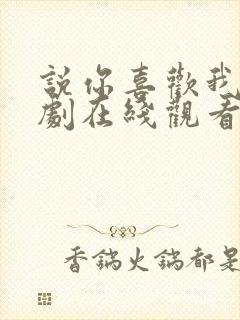 說你喜歡我
劇在綫觀看
香鍋火鍋都是